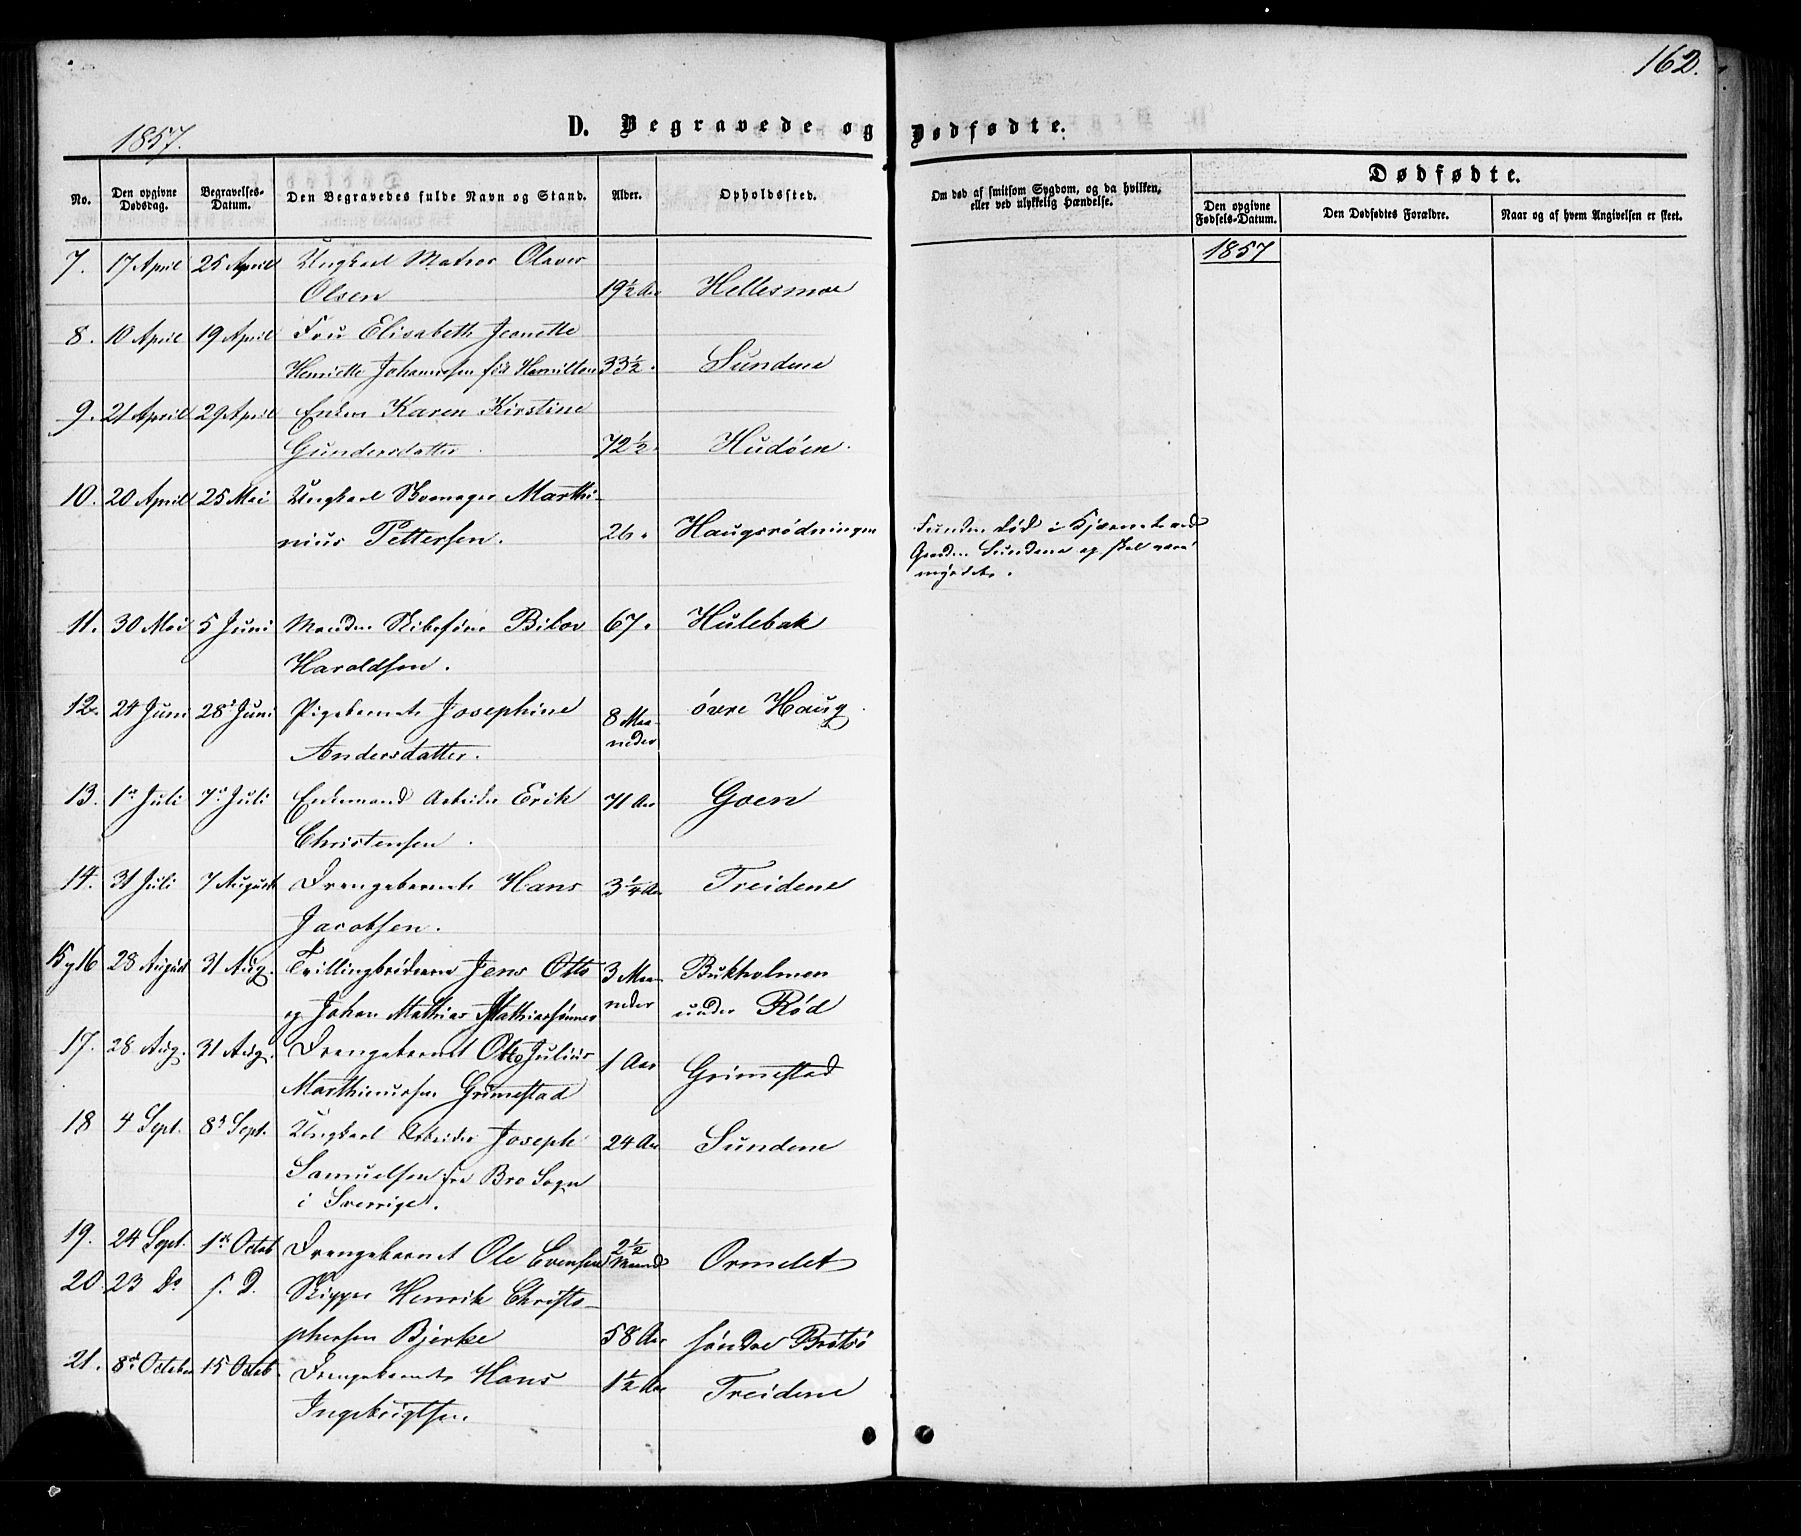 162.
1857.
D. Begravede og Dødfødte.
No.
Den opgivne Dødsdag.
Begravelses-Datum.
Den Begravedes fulde Navn og Stand.
Alder.
Opholdssted.
Om død af smitsom Sygdom, og da hvilken, eller ved ulykkelig Hændelse.
Dødfødte.
Den opgivne Fødsels-Datum.
Den Dødfødtes Forældre.
Naar og af hvem Angivelsen er skeet.
1857
7. 17 April 25 April Ungkarl Matros Olaves
Olsen 19½ Aar Hellesmoe
8. 10 April 19 April Fru Elisabeth Jeanette
Henriette Johannesen fød Hamilton 33½ " Sundene
9. 21 April 29 April Enken Karen Kirstine
Gundersdatter. 72½ " Hudøen.
10. 20 April 25 Mai Ungkarl Marthi-
nius Pettersen. 26 " Haugsrødningen
Funden død i Kjærnet ved
Gaarden Sundene og skal være
myrdet.
11. 30 Mai 5 Juni Manden Bikov 67 " Hulebak
Haroldsen.
12. 24 Juni 28de Juni Pigebarnet Josephine 8 Maa-
neder øvre Haug.
Andersdatter.
13. 1ste Juli 7de Juli Enkemand Arbeider Erik 71 Aar Goen
Christensen.
14. 31 Juli 7 August Drengebarnet Hans 3¼ Aar Treidene
Jacobsen.
15 og 16 28 August 31 Aug. Tvillingbrødrene Jens Otto 3 Maa- Bukholmen
og Johan Mathias Mathiassønner neder under Rød
17. 28 Aug. 31 Aug. Drengebarnet Otto Julius 1 Aar Grimestad
Marthinussen Grimestad
18 4 Sept. 8de Sept. Ungkarl Arbeider Joseph 24 Aar Sundene
Samuelsen fra Bro Sogn
i Sverrige.
19. 24 Sept. 1ste Octob Drengebarnet Ole Evensen 2½ Maaned Ormelet
20. 23 Do s. D. Skipper Henrik Christo-
phersen Bjerke 58 Aar søndre Bratsø
21. 8de October 15 Octob. Drengebarnet Hans 1½ Aar Treidene
Ingebrigtsen